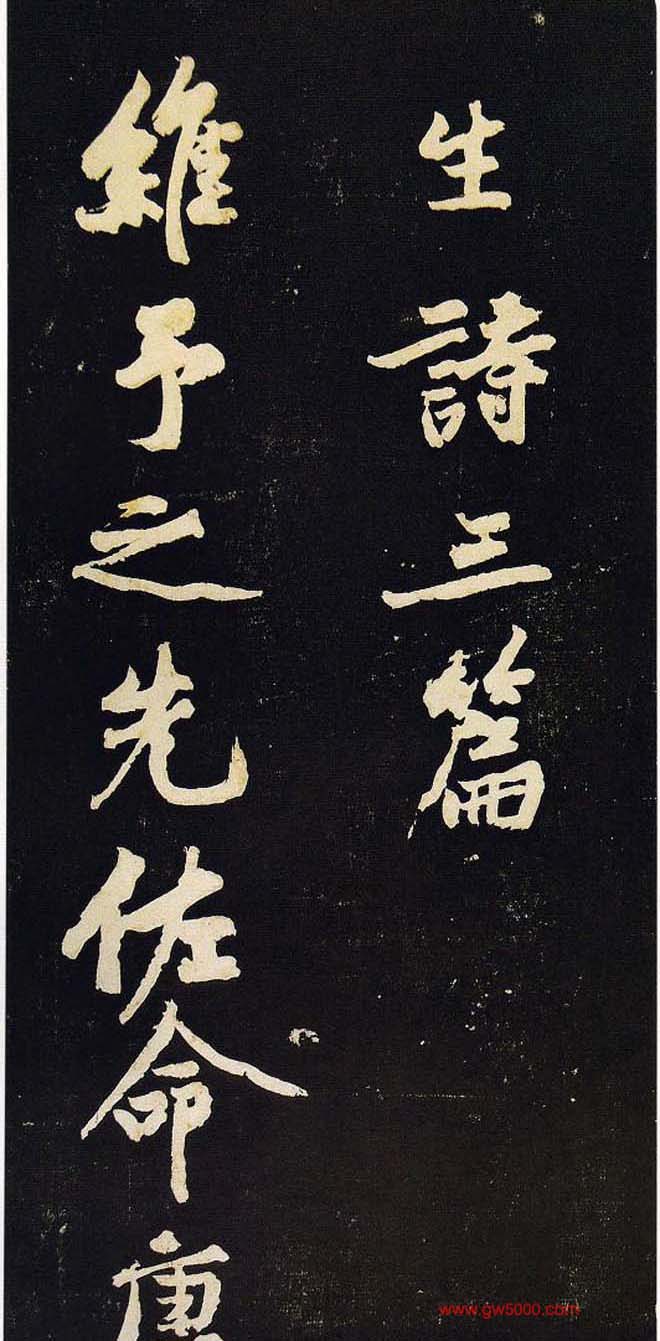 生詩三篇
維予之先佐命唐
www.gw5000.com